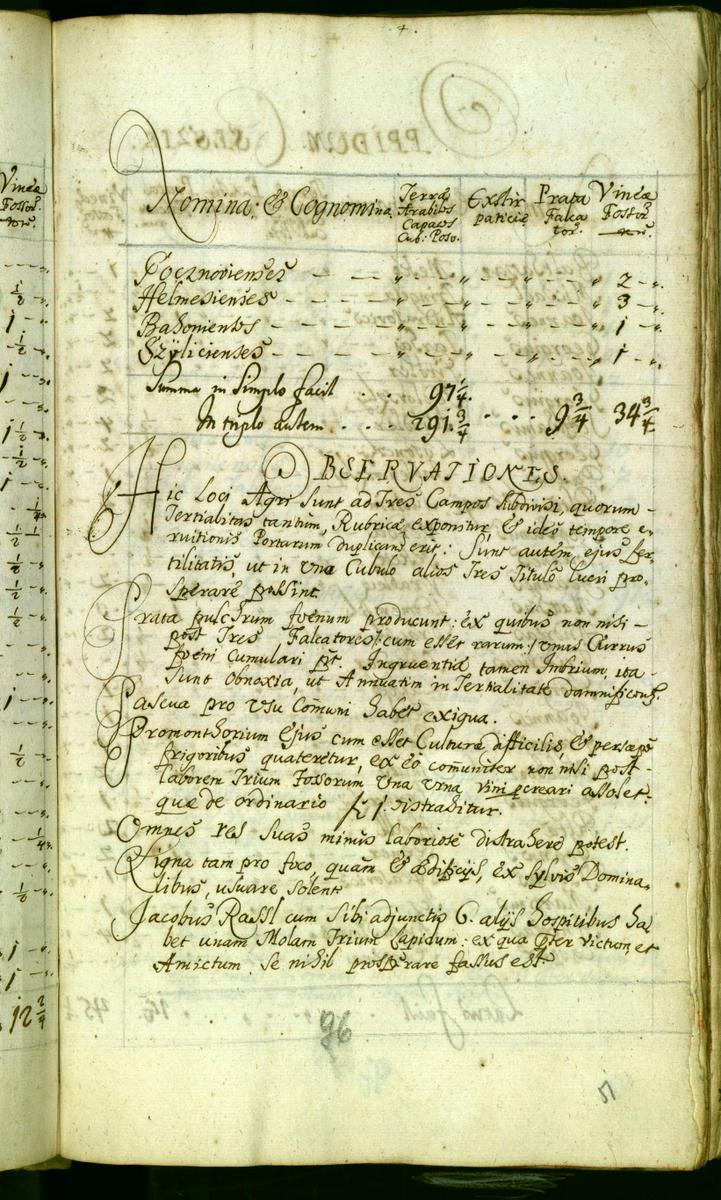 Nomina, & Cognomina Terræ Arabiles Capaces Cub: Poson. Exstirpaticiæ Prata Falcator. Vineæ Fossor.
Helmesienses - - - „ - - „ - - „ 3 - „.
- - - „ - - „ - - „ 1 - „.
Szÿlicienses - - - „ - - „ - - „ 1 - „.
Summa in Simplo facit . . . 97 1/4.
In triplo autem . . . . 291. 3/4 . . . 9 3/4 34 3/4
OBSERVATIONES.
Hic Loci Agri Sunt ad Tres Campos Subdivisi, quorum -
Tertialitas tantum, Rubricæ exponitur, & ideo tempore e-
ruitionis Portarum duplicand. erit: Sunt autem ejus fer-
tilitatis, ut in Una Cubulo alios Tres Titulo lucri pro-
sperare possint.
Prata pulchrum foenum producunt: ex quibus non nisi -
post Tres Falcatores /: cum esset rarum :/ unus Currus
foeni cumulari pt. Ingruentiæ tamen Imbrium, ita -
sunt obnoxia, ut Annuatim in Tertialitate damnificent.
Pascua pro Usu Comuni habet exigua.
Promonthorium Ejus cum esset Culturæ difficilis & persæpe
frigoribus quateretur, ex eo comuniter non nisi post -
laborem Trium Fossorum Una Urna Vini pcreari assolet:
quæ de ordinario f 1. distrahitur.
Omnes res suas minus laboriose distrahere potest.
Ligna tam pro foco, quam & ædificijs, ex Sylvis Domina-
libus, usuare Solent.
Jacobus Rassl cum Sibi adjunctis 6. alijs hospitibus ha-
bet unam Molam Trium Lapidum: ex qua pter victum, et
Amictum Se nihil prosperare fassus est.
96
51